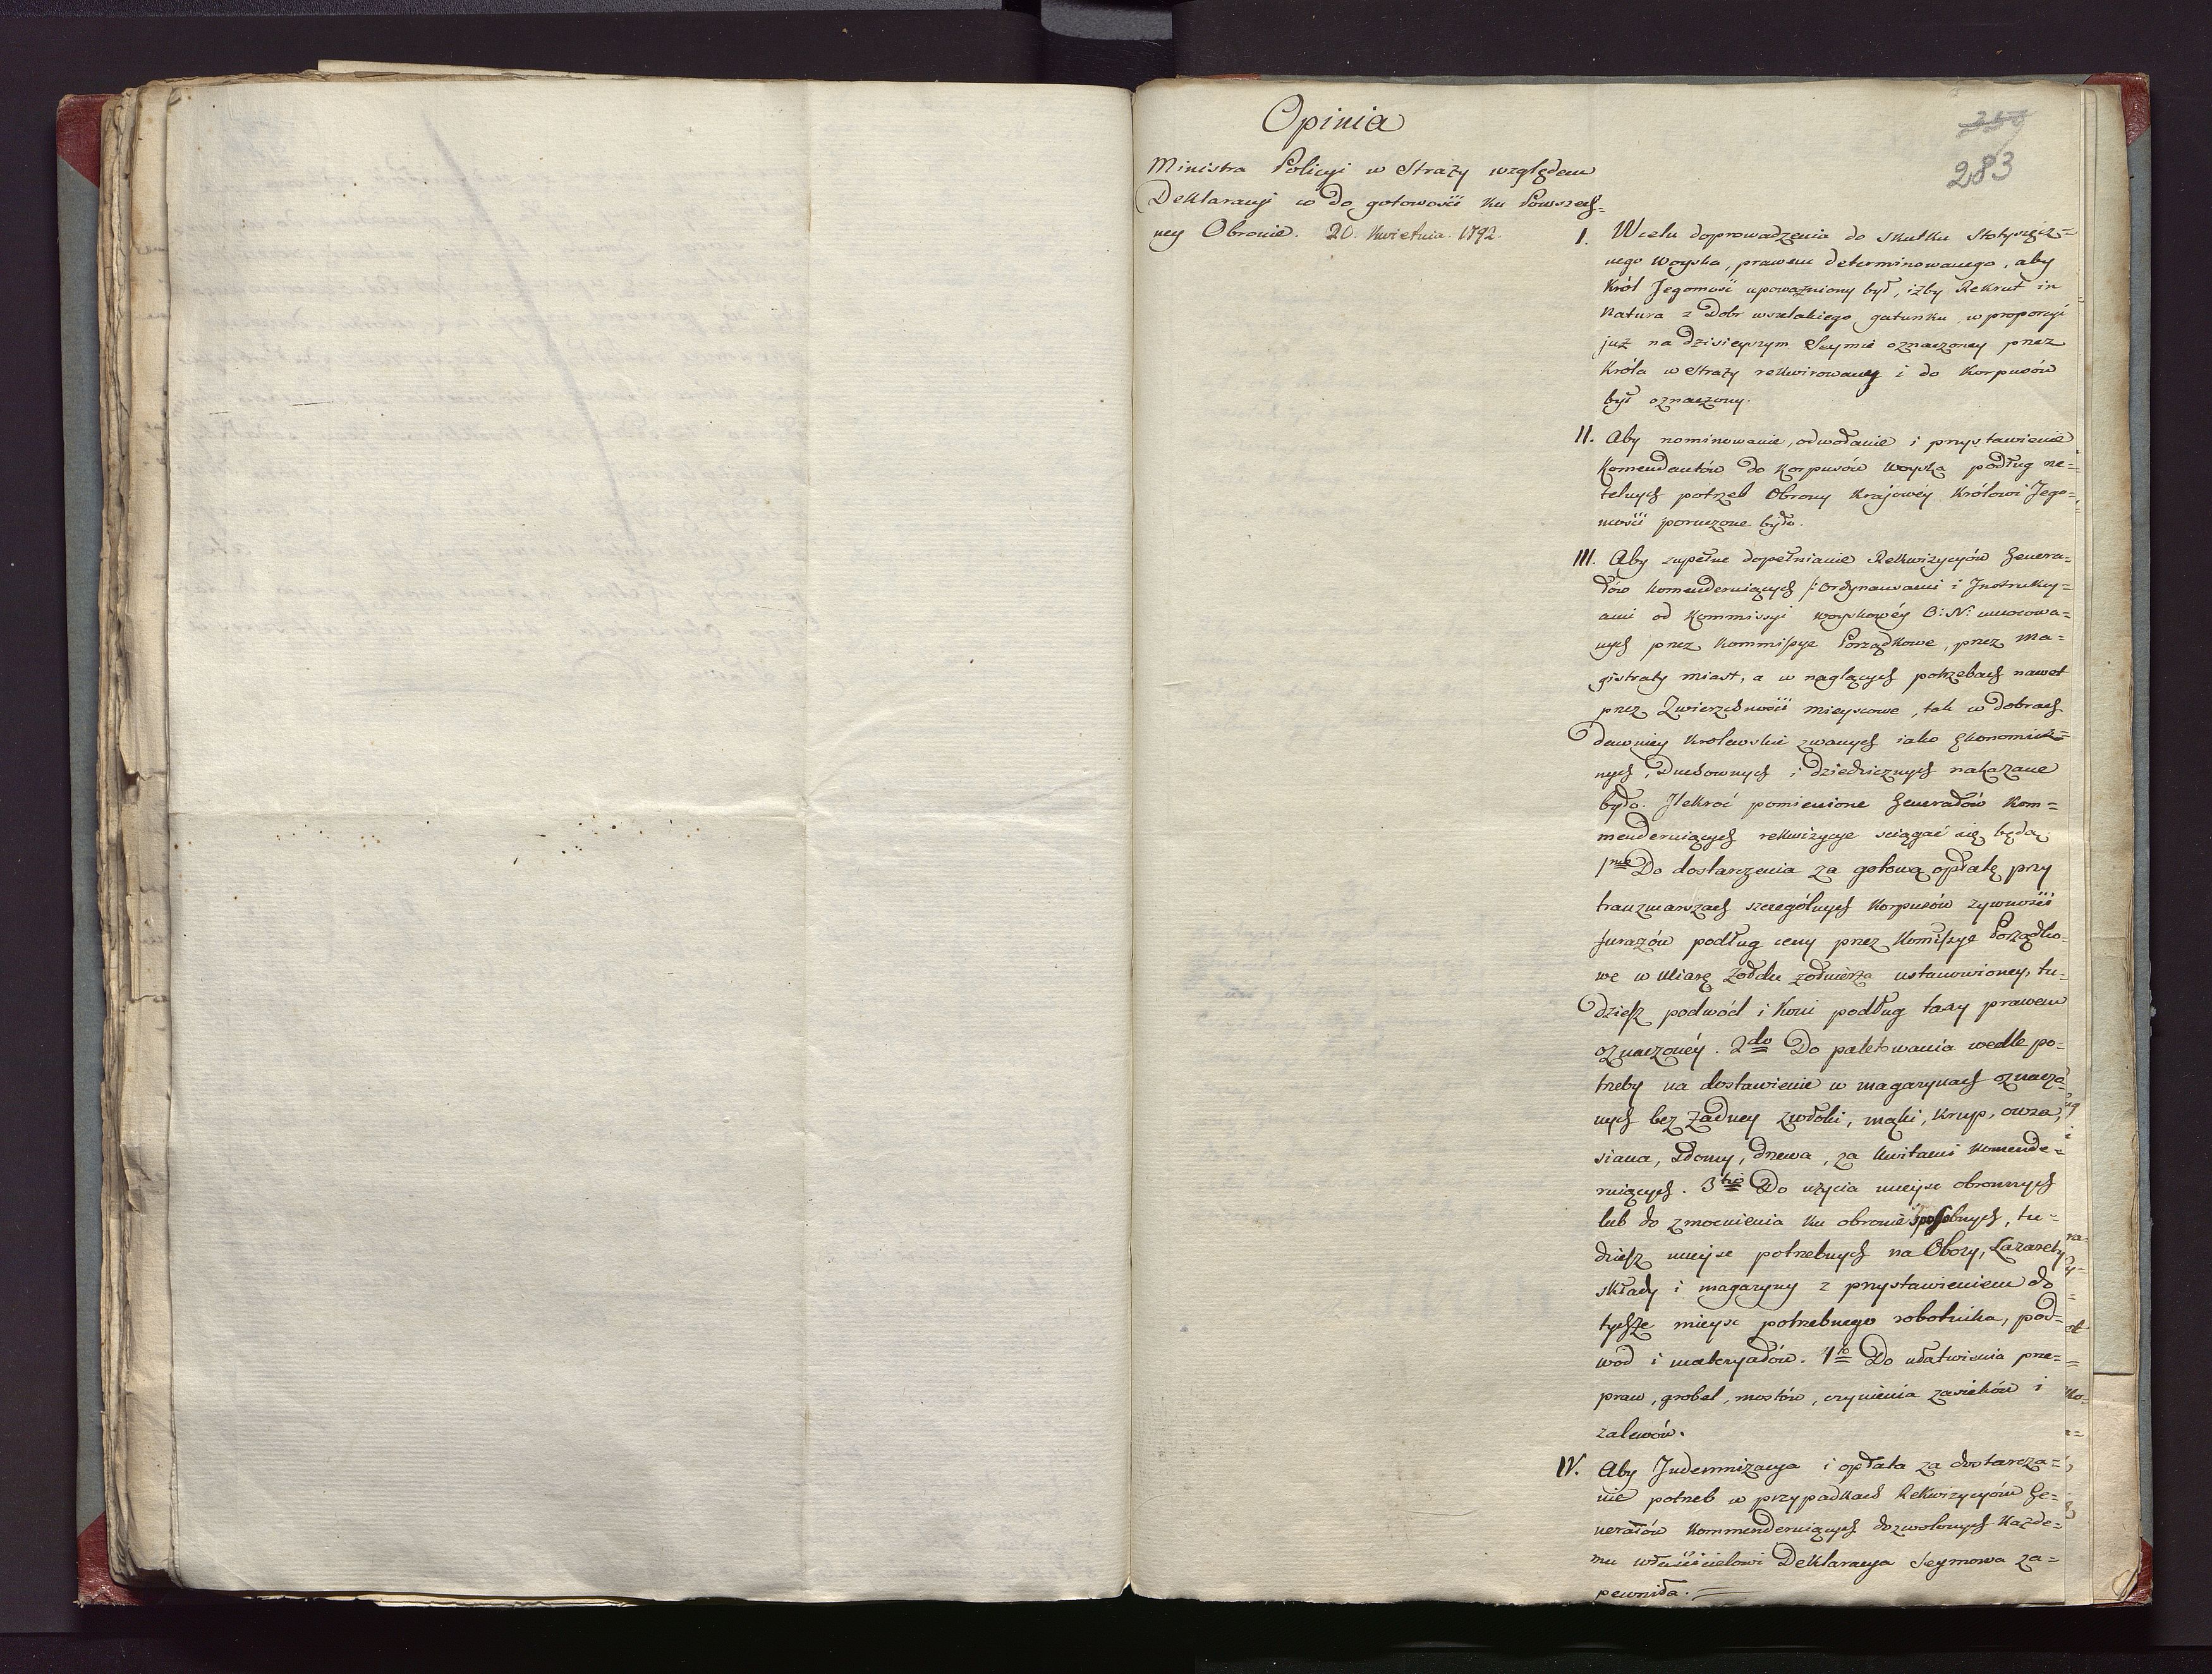 Opinia
Ministra Policyi w Straży względem
Deklaracyi w do gotowości ku Powszech=
ney Obronie. 20. Kwietnia 1792.
283
I. W celu doprowadzenia do skutku Stotysięcz=
nego Woyska, prawem determinowanego, aby
Król Jegomość upoważniony był, iżby Rekrut in
Natura z Dobr wszelakiego gatunku, w proporcyi
już na dzisieyszym Seymie oznaczoney przez
Króla w Straży rekwirowany i do Korpusów
był oznaczony.
II. Aby nominowanie, odwołanie i przystawienie
Komendantów do Korpusów Woyska podług rze=
telnych potrzeb Obrony Krajowéy Królowi Jego=
mości poruczone było.
III. Aby zupełne dopełnianie Rekwizycyów Genera=
łów komenderuiących /: Ordynansami i Instrukcy=
ami od Kommissyi Woyskowéy O: N: umocowa=
nych przez Kommissye Porządkowe, przez Ma=
gistraty miast, a w naglących potrzebach nawet
przez Zwierzchności mieyscowe, tak w dobrach
dawniey Krolewskie zwanych iako Ekonomicz=
nych, Duchownych i dziedzicznych nakazane
było. Ilekroć pomienione Generałów Kom=
menderuiących rekwizycye sciągać się będą;
1mo Do dostarczenia za gotową opłatę przy
tranzmarszach szczególnych Korpusów żywności
furażów podług ceny przez Komissye Porządko=
we w miarę Żołdu żołnierza ustanowioney, tu=
dziesz podwód i koni podług taxy prawem
oznaczonéy. 2do Do paletowania wedle po=
trzeby na dostawienie w magazynach oznaczo=
nych bez żadney zwłoki, mąki, krup, owsa,
siana, słomy, drzewa, za kwitami Komende=
ruiących. 3tio Do użycia mieysc obronnych
lub do zmocnienia ku obronie sposobnych, tu=
dziesz mieysc potrzebnych na Obozy, Lazarety
składy i magazyny z przystawieniem do
tychże mieysc potrzebnego robotnika, pod=
wod i materyałów. 4to Do ułatwienia prze=
praw, grobel, mostów, czynienia zasieków i
zalewów.
IV. Aby Indemnizacya i opłata za dostarcza=
nie potrzeb w przypadkach Rekwizycyów Ge=
nerałów Kommenderuiących dozwolonych każde=
mu właścicielowi Deklaracya Seymowa za=
pewniła.